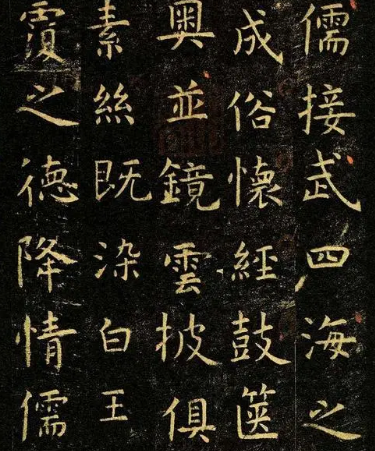 儒接武四海之
成俗懷經鼓篋
奧並鏡雲披俱
素絲既染白王
之德降情儒